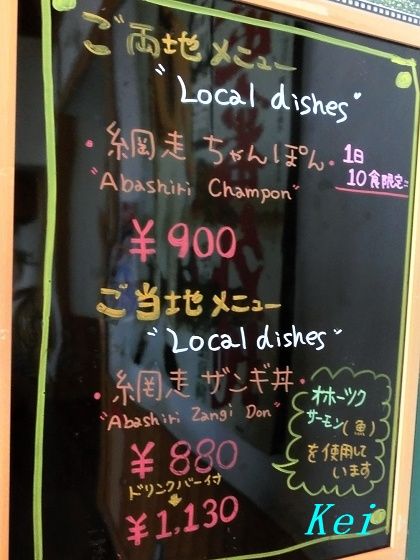 ご両地メニュー
"Local dishes"
・網走 ちゃんぽん・
1日
10食限定
"Abashiri Champon"
¥900
ご当地メニュー
"Local dishes"
・網走 ザンギ丼・
"Abashiri Zangi Don"
オホーツク
サーモン(魚)
を使用して
います
¥880
ドリンクバー付
¥1,130
Kei